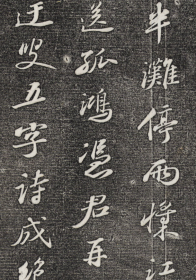 半灘停雨懞江
送孤鴻憑君再
迂叟五字詩成絶